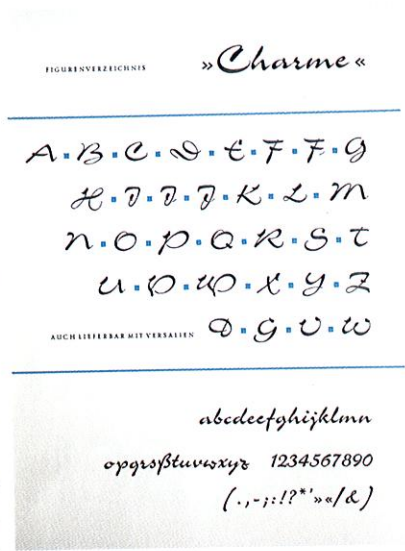 FIGURENVERZEICHNIS »Charme«
A·B·C·D·E·F·F·G
H·I·J·J·K·L·M
N·O·P·Q·R·S·T
U·V·W·X·Y·Z
AUCH LIEFERBAR MIT VERSALIEN D·G·U·W
abcdeefghijklmn
opqrsßtuvwxyz 1234567890
(.,-;:!?*'»«/&)